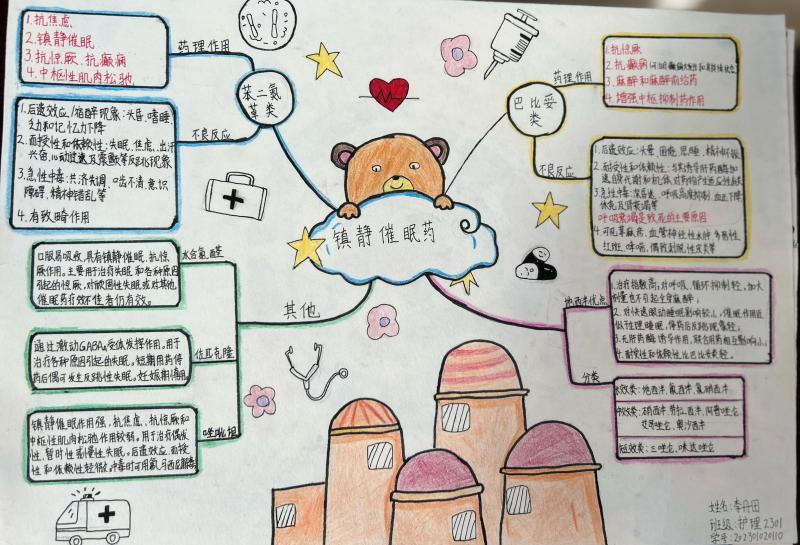 镇静催眠药
苯二氮
䓬类
药理作用
1.抗焦虑
2.镇静催眠
3.抗惊厥、抗癫痫
4.中枢性肌肉松弛
不良反应
1.后遗效应/宿醉现象:头昏、嗜睡
乏力和记忆力下降
2.耐受性和依赖性:失眠、焦虑、出汗
兴奋、心动过速及震颤等反跳现象
3.急性中毒:共济失调、口齿不清、意识
障碍、精神错乱等
4.有致畸作用
其他
水合氯醛
口服易吸收,具有镇静催眠、抗惊
厥作用。主要用于治疗失眠和各种原因
引起的惊厥。对顽固性失眠或对其他
催眠药疗效不佳者仍有效。
佐匹克隆
通过激动GABAA受体发挥作用。用于
治疗各种原因引起的失眠。短期用药停
药后偶可发生反跳性失眠。妊娠期慎用
唑吡坦
镇静催眠作用强,抗焦虑、抗惊厥和
中枢性肌肉松弛作用较弱。用于治疗偶发
性、暂时性或慢性失眠。后遗效应、耐受
性和依赖性轻微。中毒时可用氟马西尼解毒
巴比妥
类
药理作用
1.抗惊厥
2.抗癫痫
3.麻醉和麻醉前给药
4.增强中枢抑制药作用
不良反应
1.后遗效应:头晕、困倦、思睡、精神不振
2.耐受性和依赖性:与其诱导肝药酶加
速自身代谢和机体对药物产生适应性有关
3.急性中毒:深昏迷、呼吸高度抑制、血压下降
体克及肾衰竭等
呼吸衰竭是致死的主要原因
4.可见荨麻疹、血管神经性水肿、多形性
红斑、哮喘、偶致剥脱性皮炎等
地西泮优点
1.治疗指数高。对呼吸、循环抑制轻,加大
剂量也不引起全身麻醉;
2.对快速眼动睡眠影响较小,催眠作用近
似于生理睡眠,停药后反跳现象轻;
3.无肝药酶诱导作用,联合用药相互影响小
4.耐受性和依赖性比巴比妥类轻。
分类
长效类:地西泮、氟西泮、氯硝西泮
中效类:硝西泮、劳拉西泮、阿普唑仑、
艾司唑仑、奥沙西泮
短效类:三唑仑、咪达唑仑
姓名:李丹田
班级:护理2301
学号:202301020110